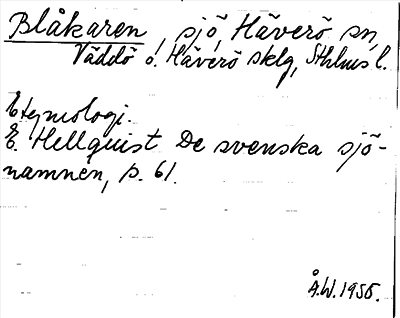 Blåkaren, sjö, Häverö sn,
Väddö o. Häverö sklg, Sthlms l.
Etymologi.
E. Hellquist De svenska sjö-
namnen, p. 61.
Å.W. 1955.